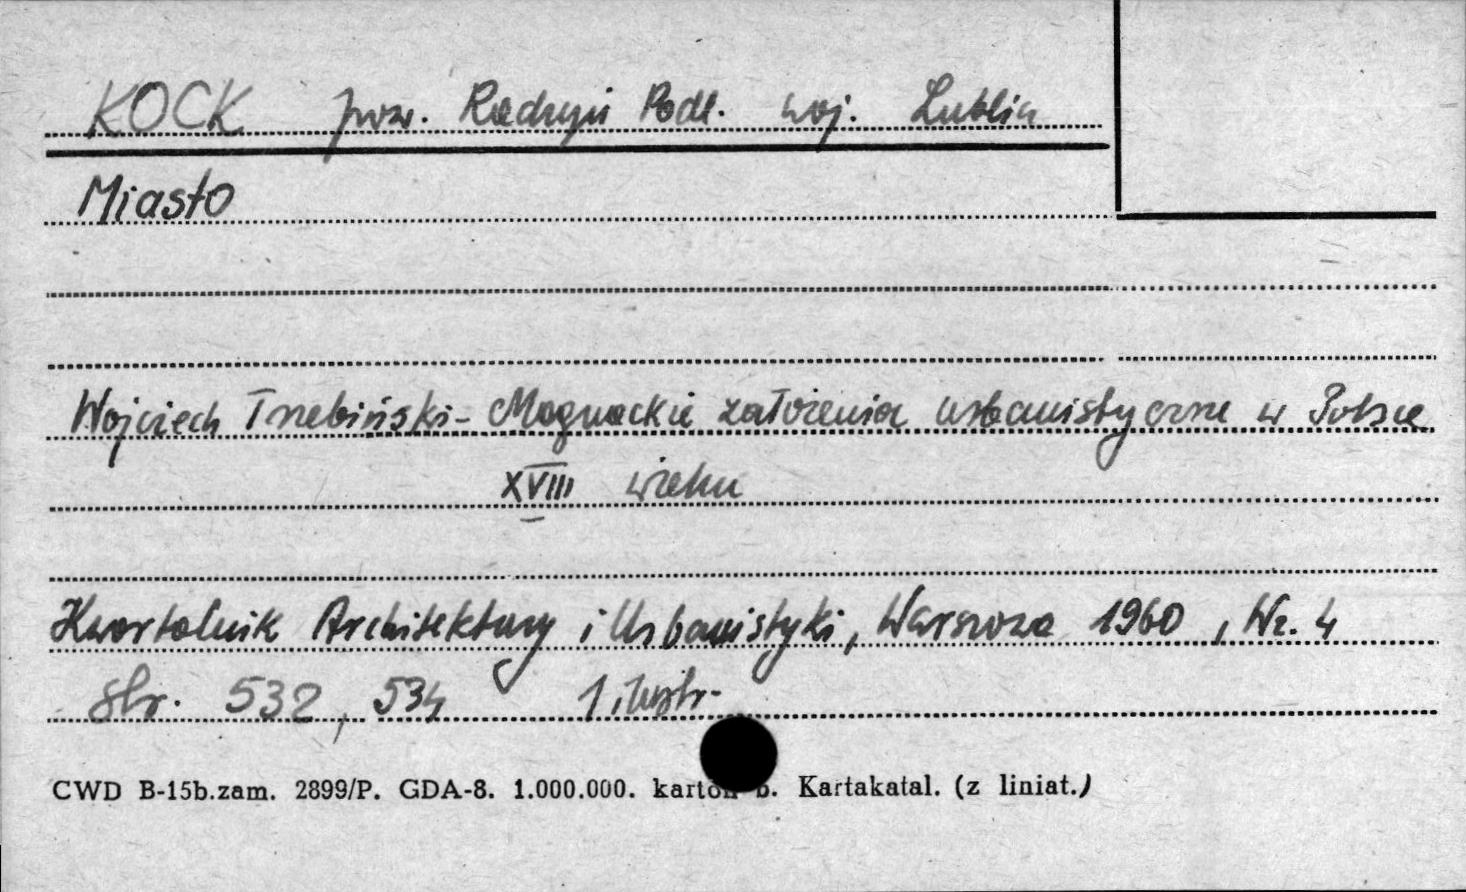 KOCK pow. Radzyń Podl. woj. Lublin
Miasto
Wojciech Trzebiński - Magnackie założenia urbanistyczne w Polsce
XVIII wieku
Kwartalnik Architektury i Urbanistyki, Warszawa 1960, Nr. 4
str. 532, 534 1 ilustr.
CWD B-15b.zam. 2899/P. GDA-8. 1.000.000. karton b. Kartakatal. (z liniat.)